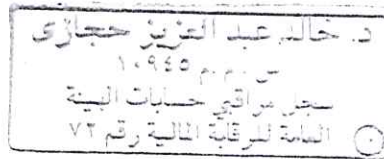 د. خالد عبد العزيز حجازى
س.م.م ١٠٩٤٥
سجل مراقبي حسابات الهيئة
العامة للرقابة المالية رقم ٧٢